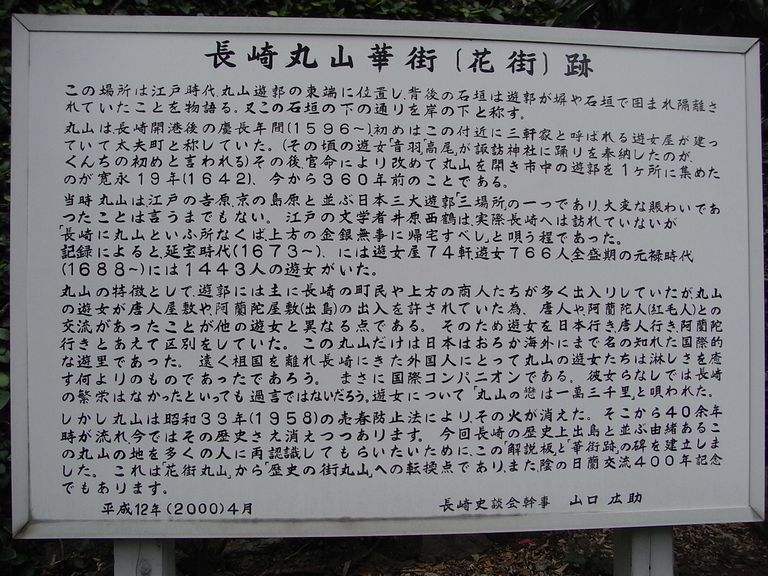 長崎丸山華街(花街)跡
この場所は江戸時代、丸山遊郭の東端に位置し、背後の石垣は遊郭が塀や石垣で囲まれ隔離さ
れていたことを物語る。又この石垣の下の通りを岸の下と称す。
丸山は長崎開港後の慶長年間(1596～)初めはこの付近に三軒家と呼ばれる遊女屋が建っ
ていて太夫町と称していた。(その頃の遊女「音羽」「高尾」が諏訪神社に踊りを奉納したのが、
くんちの初めと言われる)その後官命により改めて丸山を開き市中の遊郭を1ヶ所に集めた
のが寛永19年(1642)、今から360年前のことである。
当時丸山は江戸の吉原京の島原と並ぶ日本三大遊郭「三場所」の一つであり、大変な賑わいであ
ったことは言うまでもない。江戸の文学者井原西鶴は、実際長崎へは訪れていないが
「長崎に丸山といふ所なくば上方の金銀無事に帰宅すべし」と唄う程であった。
記録によると、延宝時代(1673～)、には遊女屋74軒、遊女766人全盛期の元禄時代
(1688～)には1443人の遊女がいた。
丸山の特徴として、遊郭には主に長崎の町民や上方の商人たちが多く出入りしていたが、丸山
の遊女が唐人屋敷や、阿蘭陀屋敷(出島)の出入を許されていた為、唐人や、阿蘭陀人(紅毛人)との
交流があったことが他の遊女と異なる点である。そのため遊女を日本行き唐人行き阿蘭陀
行きとあえて区別をしていた。この丸山だけは日本はおろか海外にまで名の知れた国際的
な遊里であった。遠く祖国を離れ長崎にきた外国人にとって丸山の遊女たちは淋しさを癒
す何よりのものであったであろう。まさに国際コンパニオンである。彼女らなしでは長崎
の繁栄はなかったといっても過言ではないだろう。遊女について「丸山の恋は一萬三千里」と唄われた。
しかし丸山は昭和33年(1958)の売春防止法により、その火が消えた。そこから40余年
時が流れ今ではその歴史さえ消えつつあります。今回長崎の歴史上出島と並ぶ由緒あるこ
の丸山の地を多くの人に再認識してもらいたいために、この「解説板」と「華街跡」の碑を建立しま
した。これは「花街丸山」から「歴史の街丸山」への転換点であり、また陰の日蘭交流400年記念
でもあります。
平成12年(2000)4月
長崎史談会幹事 山口広助